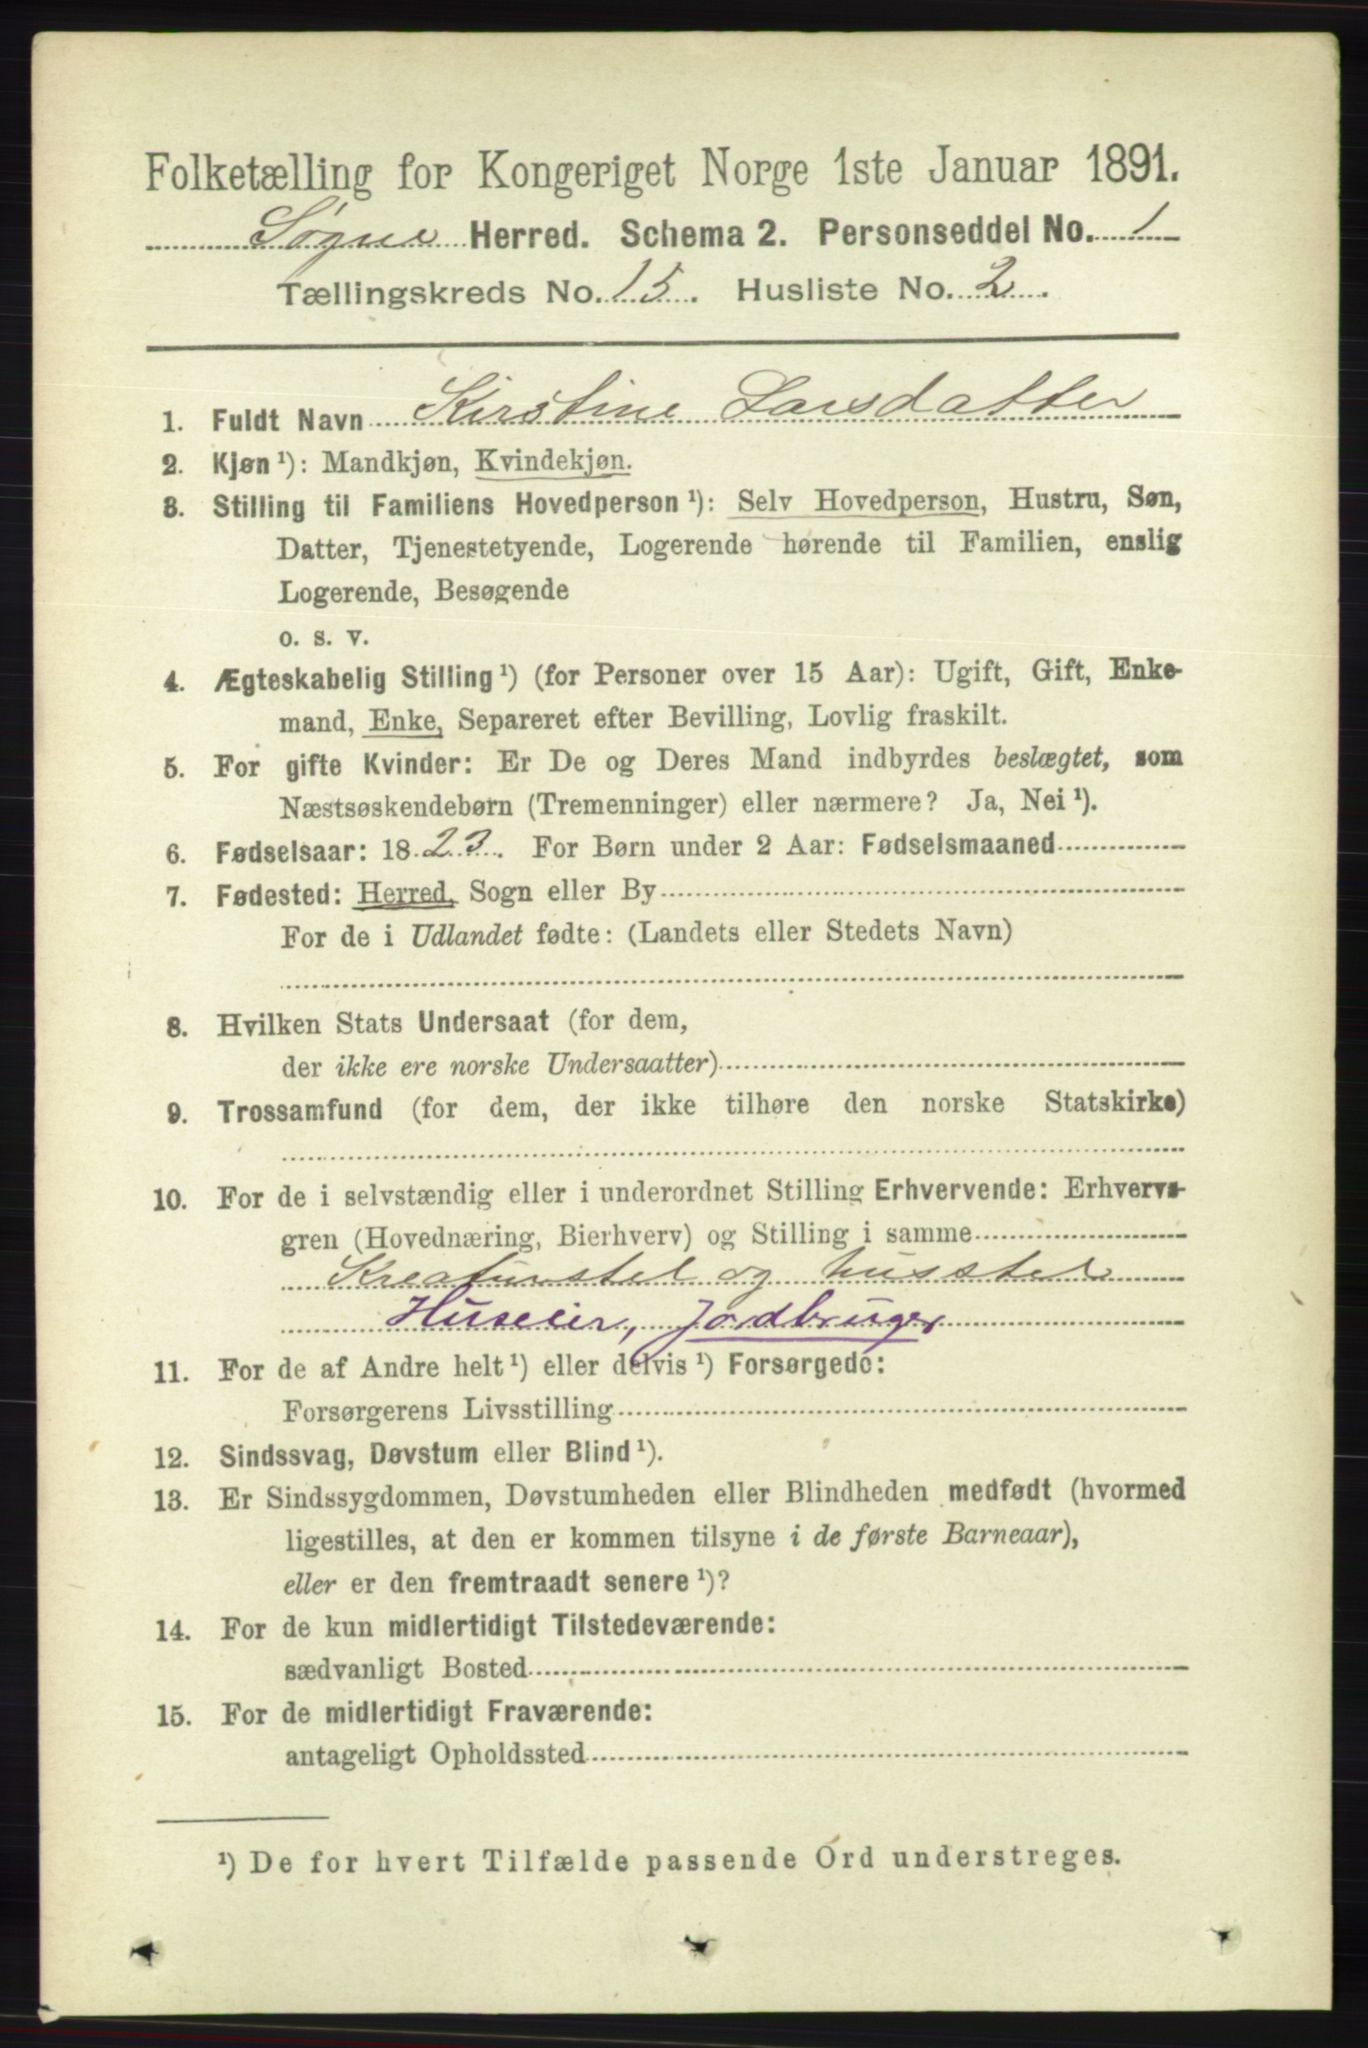 Folketælling for Kongeriget Norge 1ste Januar 1891.
Søgne Herred. Schema 2. Personseddel No. 1
Tællingskreds No. 15. Husliste No. 2.
1. Fuldt Navn Kirstine Larsdatter
2. Kjøn ¹): Mandkjøn, Kvindekjøn.
3. Stilling til Familiens Hovedperson ¹): Selv Hovedperson, Hustru, Søn,
Datter, Tjenestetyende, Logerende hørende til Familien, enslig
Logerende, Besøgende
o. s. v.
4. Ægteskabelig Stilling ¹) (for Personer over 15 Aar): Ugift, Gift, Enke-
mand, Enke, Separeret efter Bevilling, Lovlig fraskilt.
5. For gifte Kvinder: Er De og Deres Mand indbyrdes beslægtet, som
Næstsøskendebørn (Tremenninger) eller nærmere? Ja, Nei ¹).
6. Fødselsaar: 1823. For Børn under 2 Aar: Fødselsmaaned
7. Fødested: Herred, Sogn eller By
For de i Udlandet fødte: (Landets eller Stedets Navn)
8. Hvilken Stats Undersaat (for dem,
der ikke ere norske Undersaatter)
9. Trossamfund (for dem, der ikke tilhøre den norske Statskirke)
10. For de i selvstændig eller i underordnet Stilling Erhvervende: Erhvervs-
gren (Hovednæring, Bierhverv) og Stilling i samme
Kreaturstel og husstel
Huseier, Jordbruger
11. For de af Andre helt ¹) eller delvis ¹) Forsørgede:
Forsørgerens Livsstilling
12. Sindssvag, Døvstum eller Blind ¹).
13. Er Sindssygdommen, Døvstumheden eller Blindheden medfødt (hvormed
ligestilles, at den er kommen tilsyne i de første Barneaar),
eller er den fremtraadt senere ¹)?
14. For de kun midlertidigt Tilstedeværende:
sædvanligt Bosted
15. For de midlertidigt Fraværende:
antageligt Opholdssted
¹) De for hvert Tilfælde passende Ord understreges.